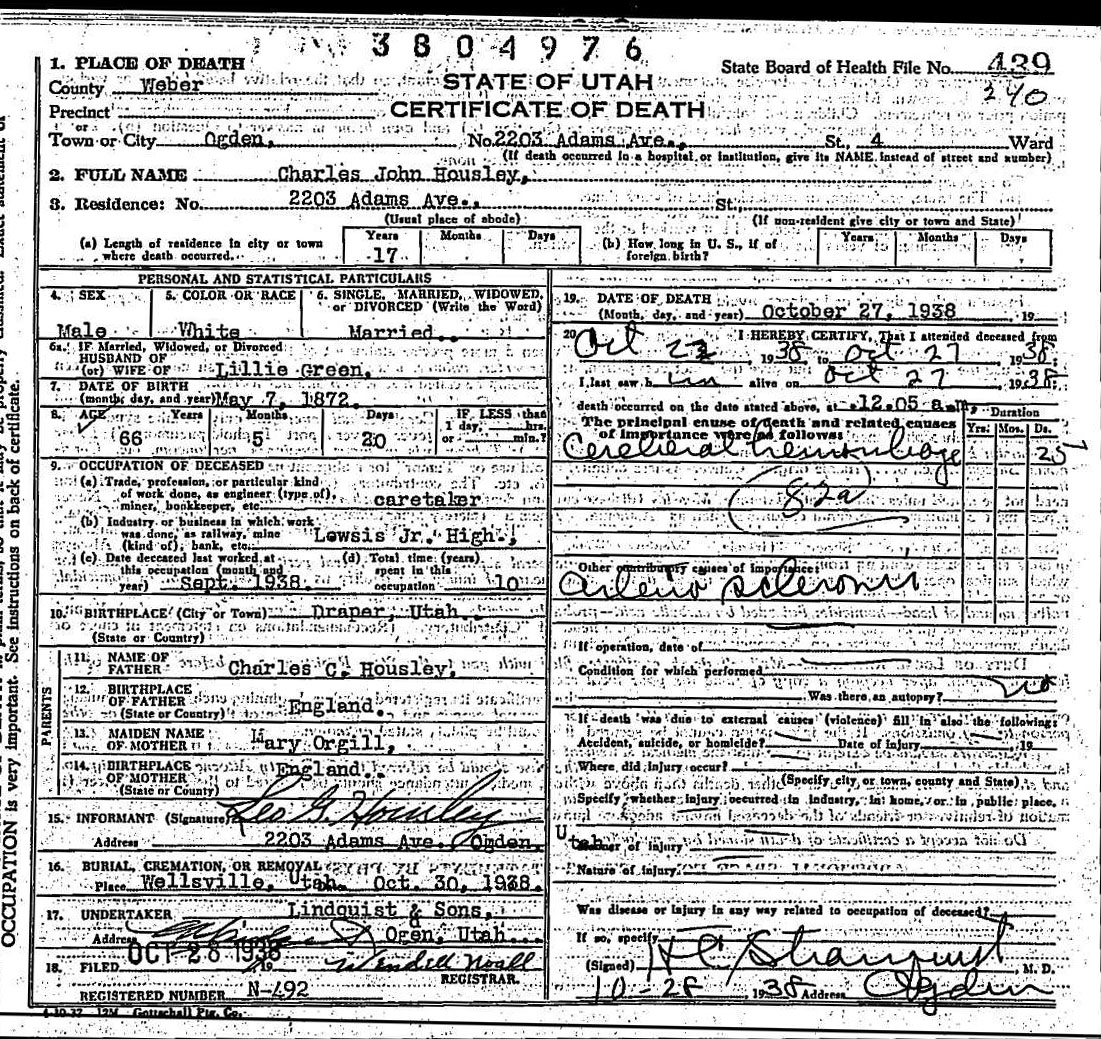 3804976
1. PLACE OF DEATH
State Board of Health File No. 439
240
County Weber
STATE OF UTAH
Precinct
CERTIFICATE OF DEATH
or
Town or City Ogden, No. 2203 Adams Ave., St., 4 Ward
(If death occurred in a hospital or institution, give its NAME instead of street and number)
2. FULL NAME Charles John Housley,
3. Residence: No. 2203 Adams Ave., St.
(Usual place of abode) (If non-resident give city or town and State)
(a) Length of residence in city or town where death occurred. Years 17 Months Days
(b) How long in U. S., if of foreign birth? Years Months Days
PERSONAL AND STATISTICAL PARTICULARS
4. SEX 5. COLOR OR RACE 6. SINGLE, MARRIED, WIDOWED, or DIVORCED (Write the Word)
Male White Married
6a. IF Married, Widowed, or Divorced
HUSBAND OF
(or) WIFE OF Lillie Green,
7. DATE OF BIRTH
(month, day, and year) May 7, 1872.
8. AGE Years Months Days IF LESS than
1 day, hrs.
66 5 20 or min.?
9. OCCUPATION OF DECEASED
(a) Trade, profession, or particular kind
of work done, as engineer (type of),
miner, bookkeeper, etc. caretaker
(b) Industry or business in which work
was done, as railway, mine
(kind of), bank, etc. Lewsis Jr. High.,
(c) Date deceased last worked at
this occupation (month and
year) Sept. 1938.
(d) Total time (years)
spent in this
occupation 10
10. BIRTHPLACE (City or Town) Draper, Utah
(State or Country)
PARENTS
11. NAME OF
FATHER Charles C. Housley,
12. BIRTHPLACE
OF FATHER England.
(State or Country)
13. MAIDEN NAME
OF MOTHER Mary Orgill,
14. BIRTHPLACE
OF MOTHER England.
(State or Country)
15. INFORMANT (Signature) Geo G. Housley
Address 2203 Adams Ave. Ogden, Utah
16. BURIAL, CREMATION, OR REMOVAL
Place Wellsville, Utah. Oct. 30, 1938.
17. UNDERTAKER Lindquist & Sons,
Address Ogen, Utah.
d
OCT 28 1938
18. FILED 19 Wendell Noall
REGISTRAR.
REGISTERED NUMBER N-492
4-10-37 12M Gottschall Ptg. Co.
19. DATE OF DEATH
(Month, day, and year) October 27, 1938 19
20. I HEREBY CERTIFY, That I attended deceased from
Oct 1938 to Oct 27 1938
I last saw him alive on Oct 27 1938
death occurred on the date stated above, at 12.05 a.m.
The principal cause of death and related causes
of importance were as follows:
Duration
Yrs. Mos. Ds.
Cerebral hemorrhage
82a
Other contributory causes of importance:
Arterio sclerosis
If operation, date of
Condition for which performed
Was there an autopsy? no
If death was due to external causes (violence) fill in also the following:
Accident, suicide, or homicide? Date of injury 19
Where did injury occur?
(Specify city, or town, county and State)
Specify whether injury occurred in industry, in home, or in public place,
Manner of injury
Nature of injury
Was disease or injury in any way related to occupation of deceased?
If so, specify
(Signed) H C Stranquist, M. D.
10-28, 1938 Address Ogden
OCCUPATION is very important. See instructions on back of certificate.